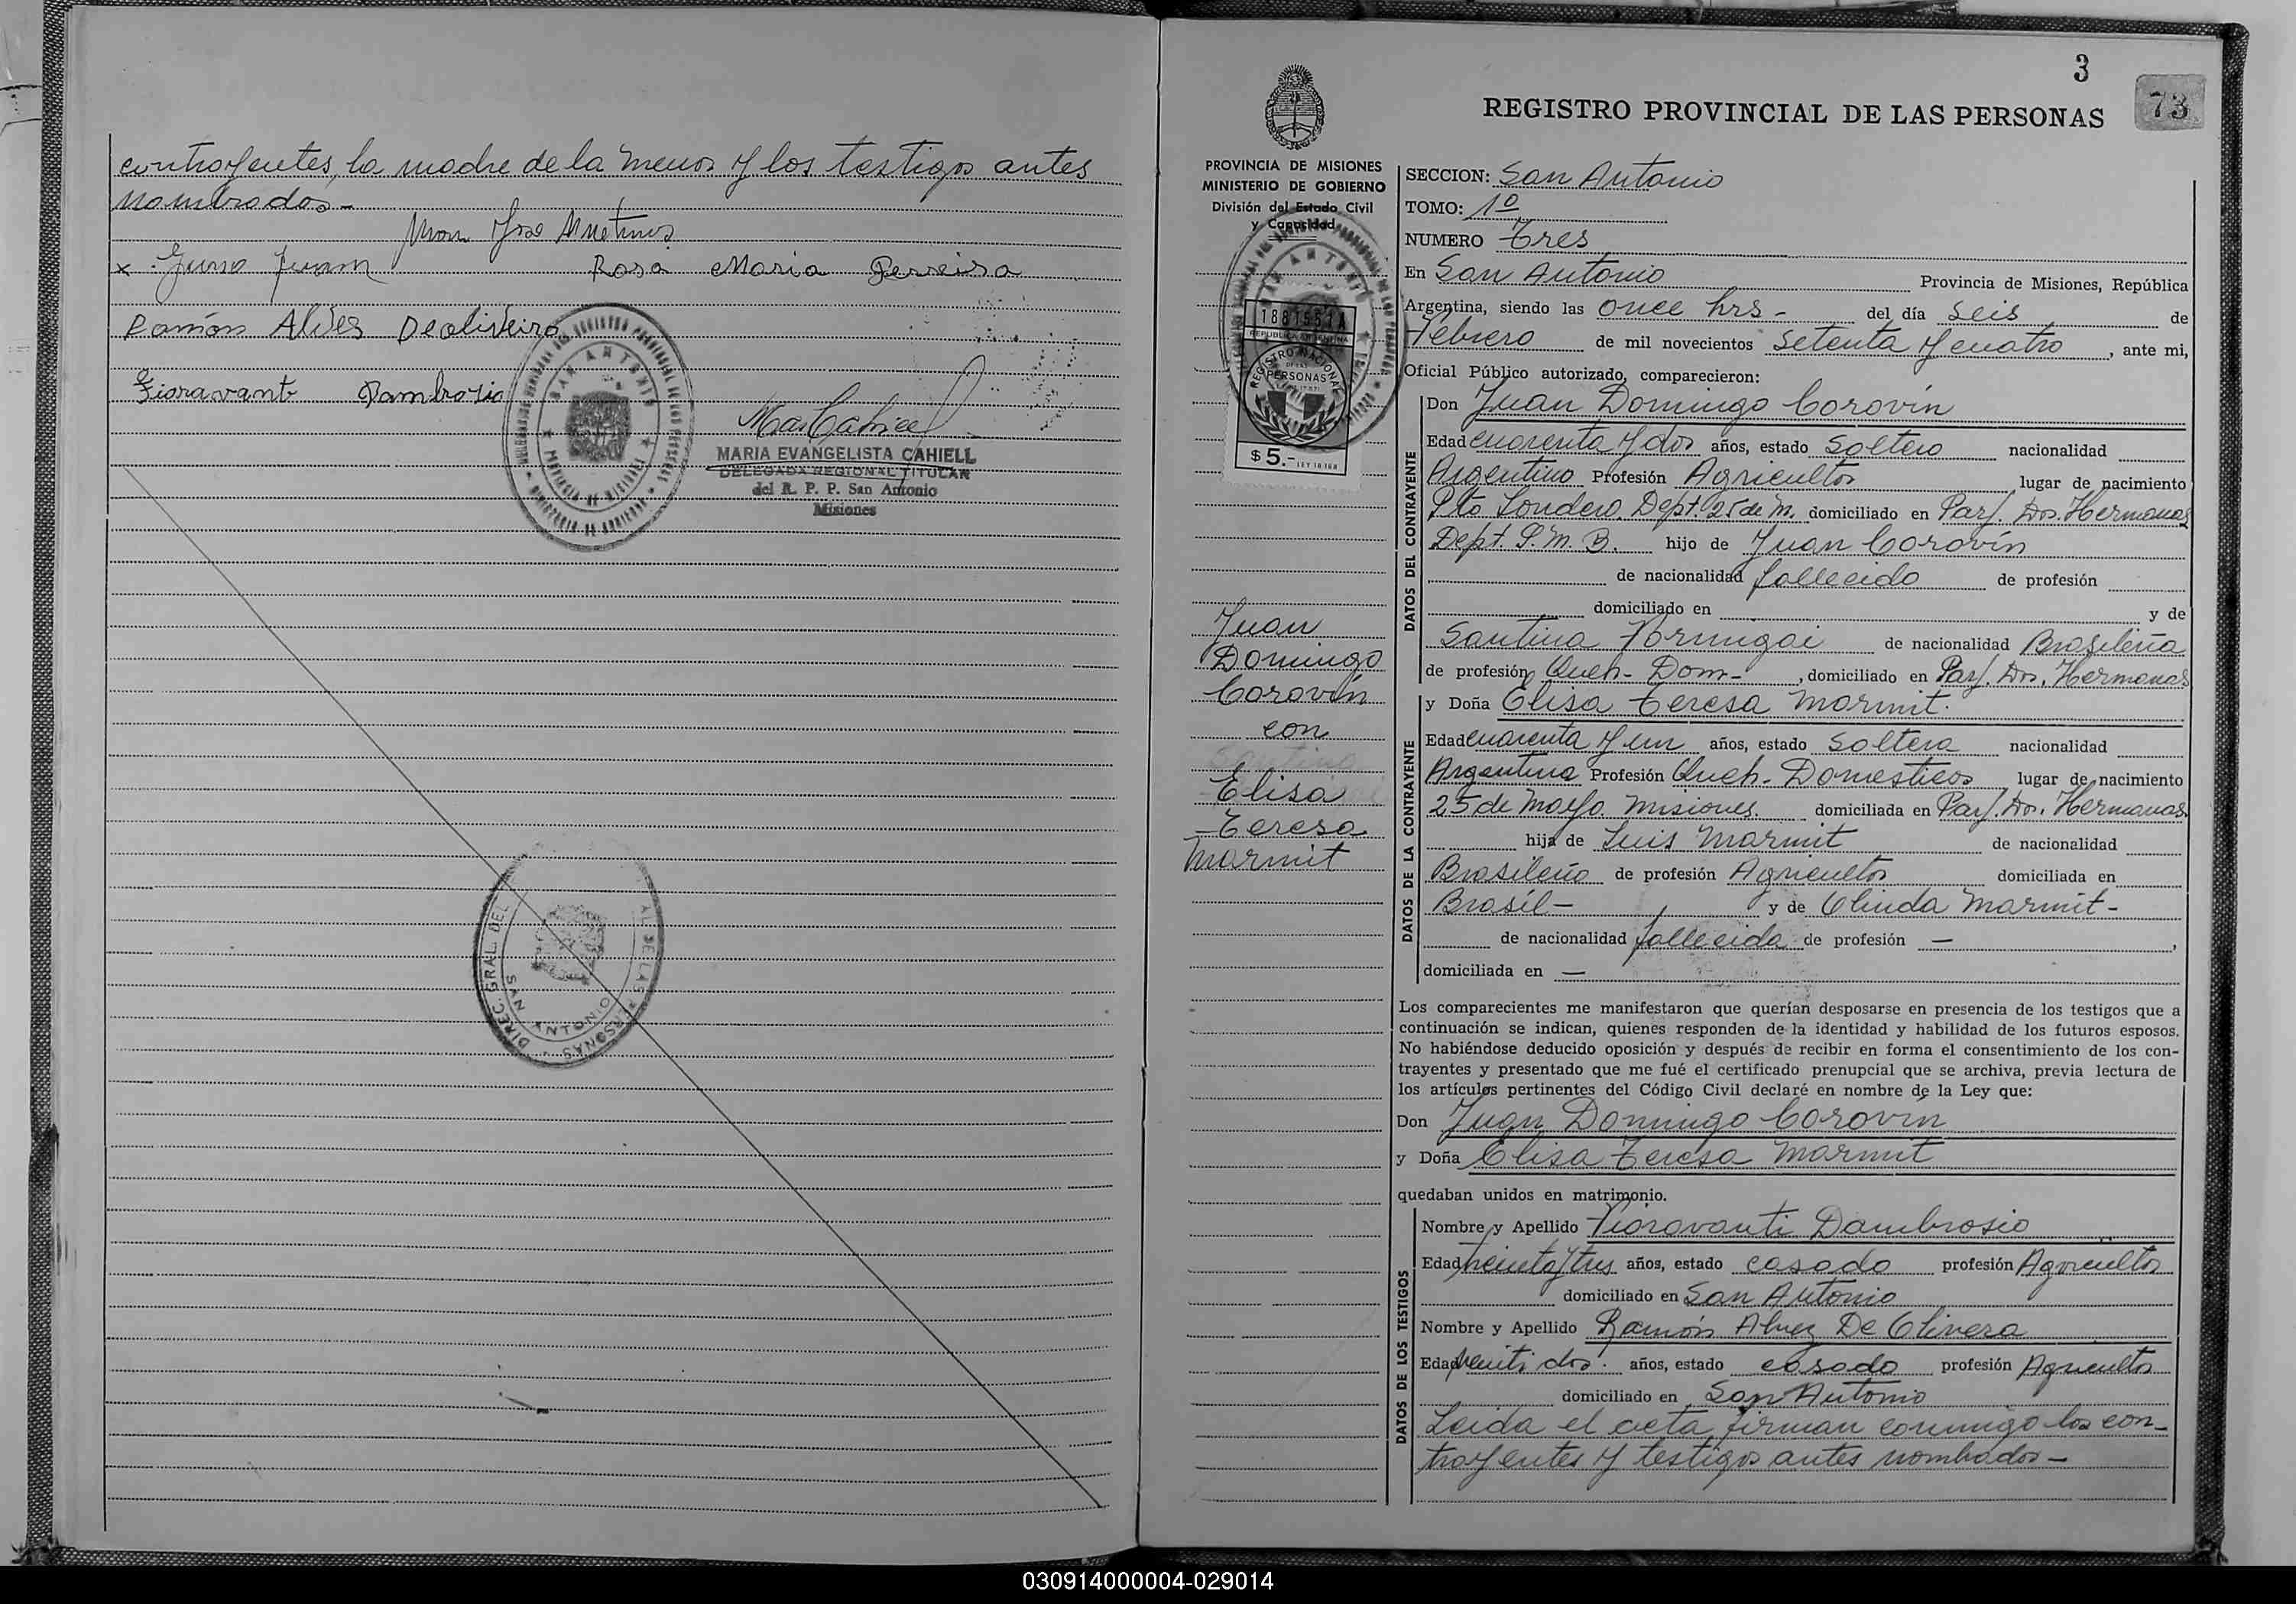 contrayentes, la madre de la menor y los testigos antes
nombrados-
x
Rosa Maria Pereira
Ramón Alves Deoliveira
Fioravant Dambrosio
SAN ANTONIO
PROVINCIA DE MISIONES
MARIA EVANGELISTA CAHIELL
DELEGADA REGIONAL TITULAR
del R. P. P. San Antonio
Misiones
DIREC. GRAL. DEL
SAN ANTONIO
3
73
REGISTRO PROVINCIAL DE LAS PERSONAS
PROVINCIA DE MISIONES
MINISTERIO DE GOBIERNO
División del Estado Civil
y Capacidad
REPUBLICA ARGENTINA
REGISTRO NACIONAL
DE LAS
PERSONAS
$ 5.-
Juan
Domingo
Corovín
con
Elisa
Teresa
Marmit
SECCION: San Antonio
TOMO: 1º
NUMERO Tres
En San Antonio Provincia de Misiones, República
Argentina, siendo las once hrs - del día seis de
Febrero de mil novecientos setenta y cuatro, ante mi,
Oficial Público autorizado, comparecieron:
DATOS DEL CONTRAYENTE
Don Juan Domingo Corovín
Edad cuarenta y dos años, estado soltero nacionalidad
Argentino Profesión Agricultor lugar de nacimiento
Pto Londero, Dept. 25 de M. domiciliado en Parj. Dos. Hermanas
Dept. G.M.B. hijo de Juan Corovín
de nacionalidad fallecido de profesión
domiciliado en y de
Santina Formigai de nacionalidad Brasileña
de profesión Queh- Dom-, domiciliado en Parj. Dos. Hermanas
DATOS DE LA CONTRAYENTE
y Doña Elisa Teresa Marmit.
Edad cuarenta y un años, estado soltera nacionalidad
Argentina Profesión Queh- Domesticos lugar de nacimiento
25 de Mayo. Misiones. domiciliada en Parj. Dos. Hermanas.
hija de Luis Marmit de nacionalidad
Brasileño de profesión Agricultor domiciliada en
Brasil- y de Olinda Marmit-
de nacionalidad fallecida de profesión —,
domiciliada en —
Los comparecientes me manifestaron que querían desposarse en presencia de los testigos que a
continuación se indican, quienes responden de la identidad y habilidad de los futuros esposos.
No habiéndose deducido oposición y después de recibir en forma el consentimiento de los con-
trayentes y presentado que me fué el certificado prenupcial que se archiva, previa lectura de
los artículos pertinentes del Código Civil declaré en nombre de la Ley que:
Don Juan Domingo Corovín
y Doña Elisa Teresa Marmit
quedaban unidos en matrimonio.
DATOS DE LOS TESTIGOS
Nombre y Apellido Fioravanti Dambrosio
Edad treinta y tres años, estado casado profesión Agricultor
domiciliado en San Antonio
Nombre y Apellido Ramón Alvez De Olivera
Edad veinti dos. años, estado casado profesión Agricultor
domiciliado en San Antonio
Leida el acta, firman conmigo los con-
trayentes y testigos antes nombrados-
030914000004-029014